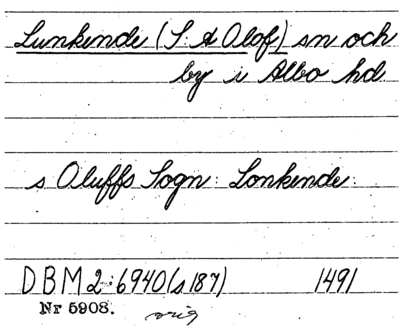 Lunkende (S:t Olof) sn och
by i Albo hd.
s Oluffs Sogn: Lonkende.
DBM 2:6940 (s 187) 1491
Nr 5908.
orig